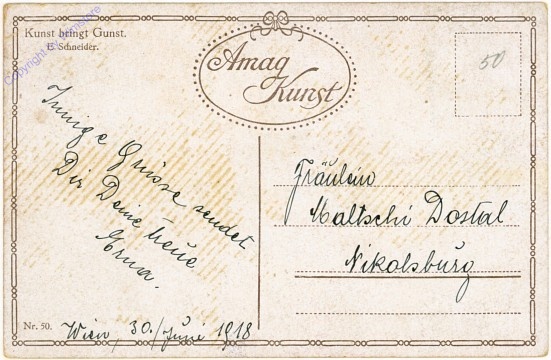 Kunst bringt Gunst.
E. Schneider.
Amag
Kunst
50
Innige Grüsse sendet
Dir Deine treue
Erna.
Fräulein
Maltschi Dostal
Nikolsburg
Nr. 50.
Wien, 30./Juni 1918